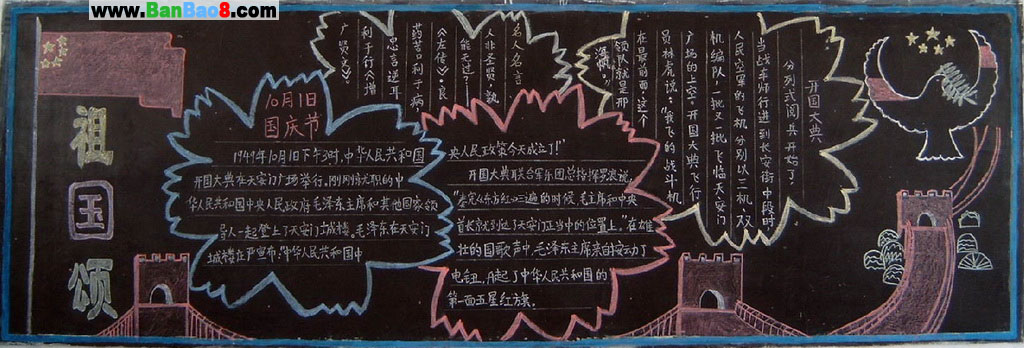 www.BanBao8.com
祖
国
颂
10月1日
国庆节
1949年10月1日下午3时,中华人民共和国
开国大典在天安门广场举行。刚刚就职的中
华人民共和国中央人民政府毛泽东主席和其他国家领
导人一起登上了天安门城楼。毛泽东在天安门
城楼庄严宣布:"中华人民共和国中
央人民政策今天成立了!"
开国大典联合军乐团总指挥罗浪说,
"奏完《东方红》三遍的时候,毛主席和中央
首长就到达了天安门正当中的位置上。"在雄
壮的国歌声中,毛泽东主席亲自按动了
电钮,升起了中华人民共和国的
第一面五星红旗。
名人名言
人非圣贤,孰
能无过?
《左传》。良
药苦口利于病
忠言逆耳
利于行《增
广贤文》。
开国大典
分列式阅兵开始了。
当战车师行进到长安街中段时
人民空军的飞机分别以二机双
机编队,一批又一批飞临天安门
广场的上空。开国大典飞行
员林虎说:"我飞的战斗机
在最前面,这个
领队就是邢
海帆。"